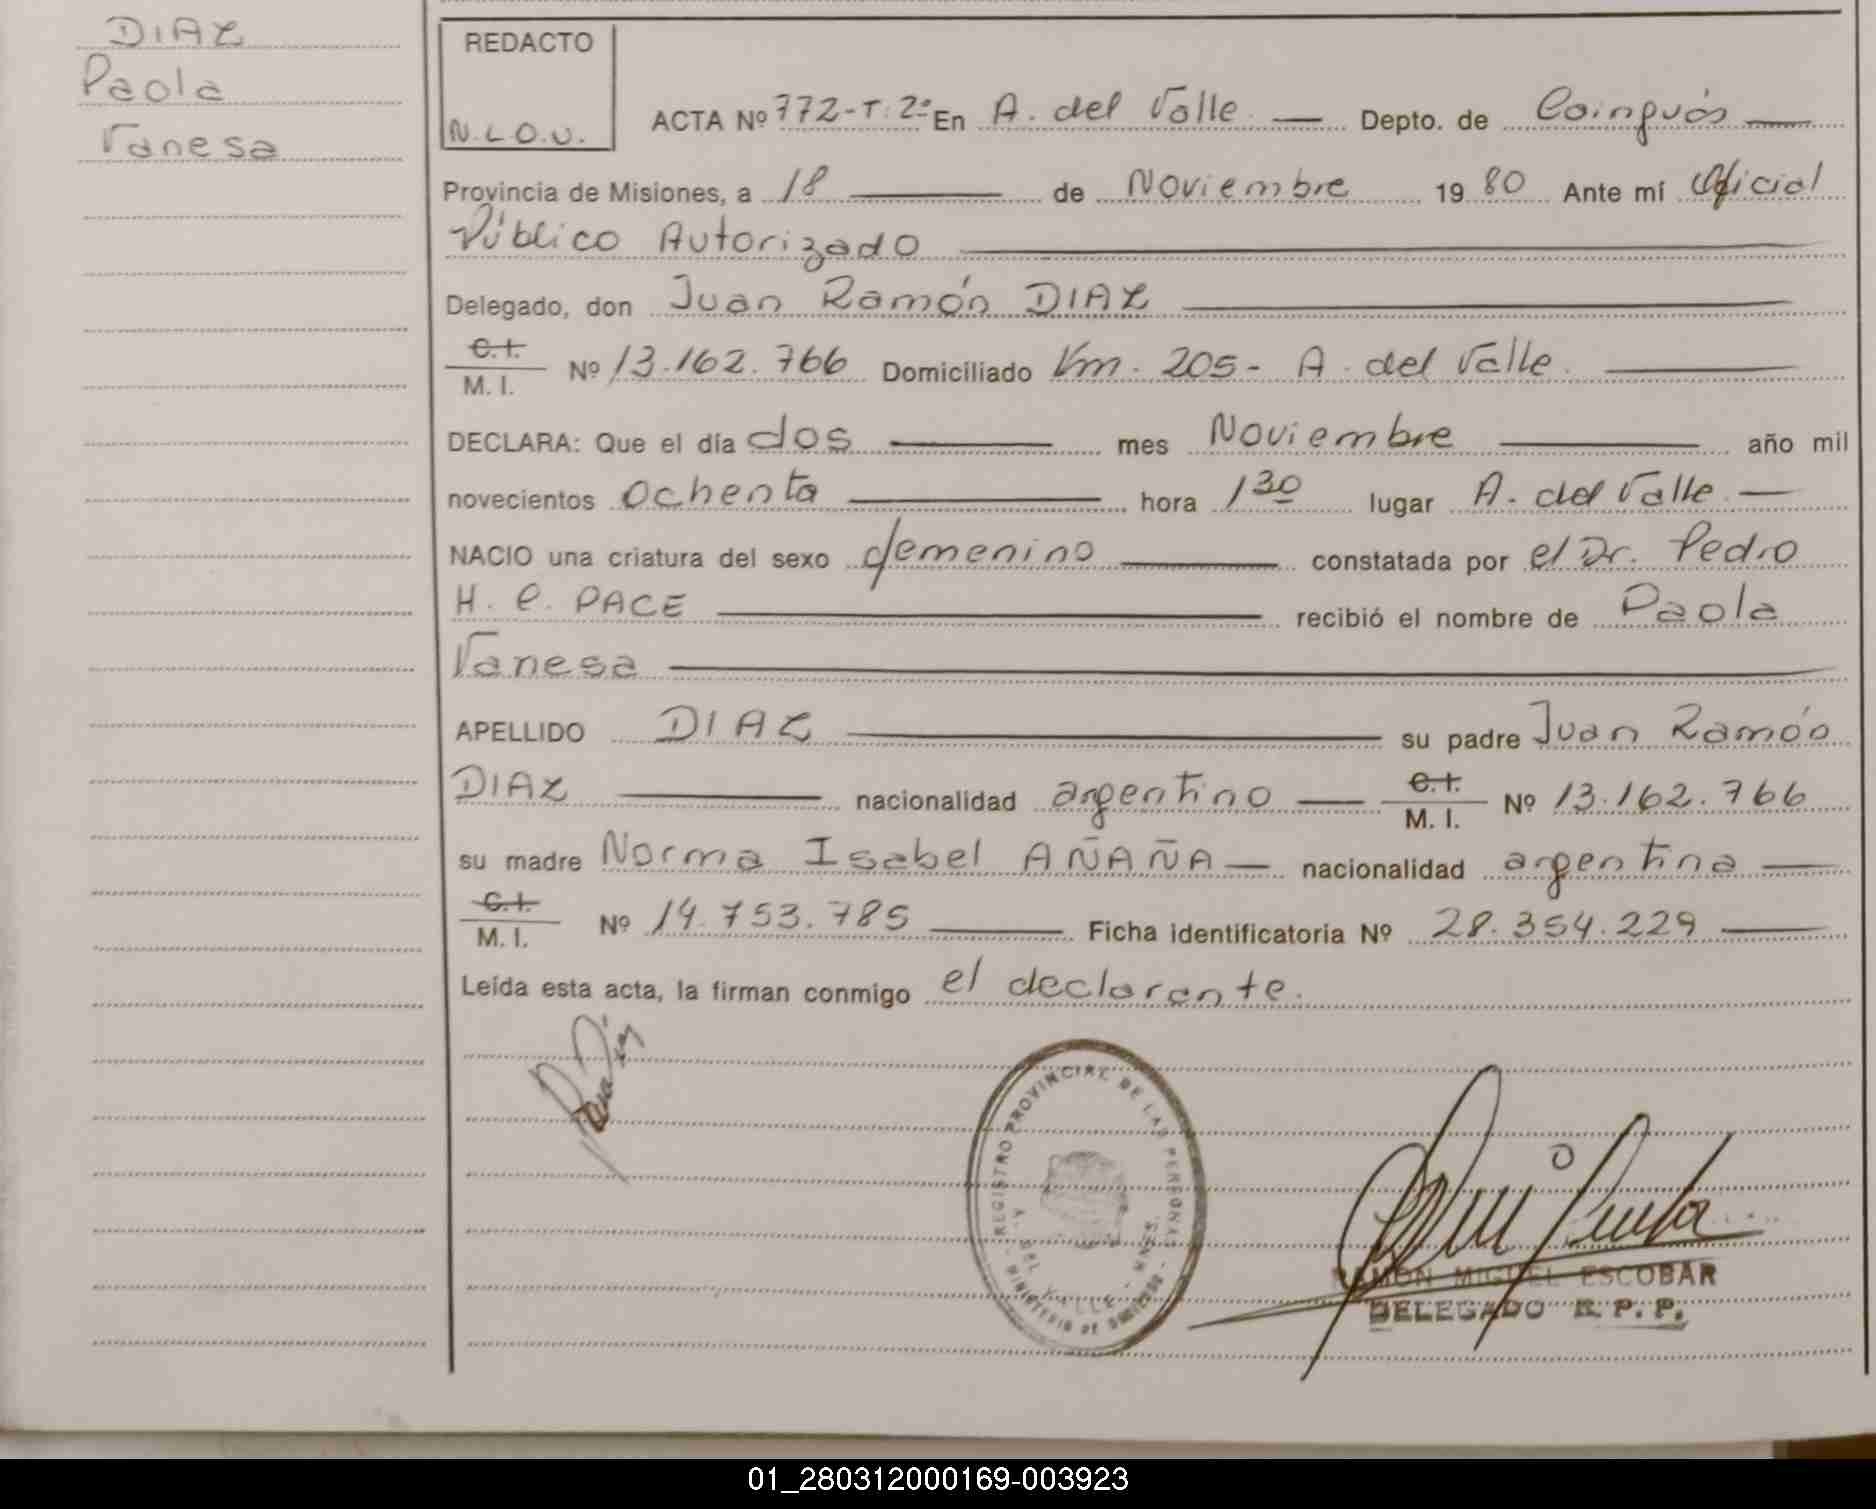 DIAZ
Paola
Vanesa
REDACTO
N.L.O.U.
ACTA Nº 772-T:2º En A. del Valle Depto. de Cainguás
Provincia de Misiones, a 18 de Noviembre 1980 Ante mí Oficial
Público Autorizado
Delegado, don Juan Ramón DIAZ
C.I.
M. I. Nº 13.162.766 Domiciliado Km. 205- A. del Valle.
DECLARA: Que el día dos mes Noviembre año mil
novecientos ochenta hora 1 30 lugar A. del Valle
NACIO una criatura del sexo femenino constatada por el Dr. Pedro
H. C. PACE recibió el nombre de Paola
Vanesa
APELLIDO DIAZ su padre Juan Ramón
DIAZ nacionalidad argentino C.I.
M. I. Nº 13.162.766
su madre Norma Isabel AÑAÑA nacionalidad argentina
C.I.
M. I. Nº 14.753.785 Ficha identificatoria Nº 28.354.229
Leída esta acta, la firman conmigo el declarante.
REGISTRO PROVINCIAL DE LAS PERSONAS
A. DEL VALLE - MNES.
MINISTERIO DE GOBIERNO
RAMON MIGUEL ESCOBAR
DELEGADO R. P. P.
01_280312000169-003923